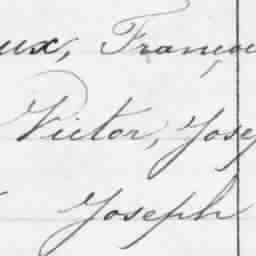 ux, Franço
Victor, Jose
Joseph